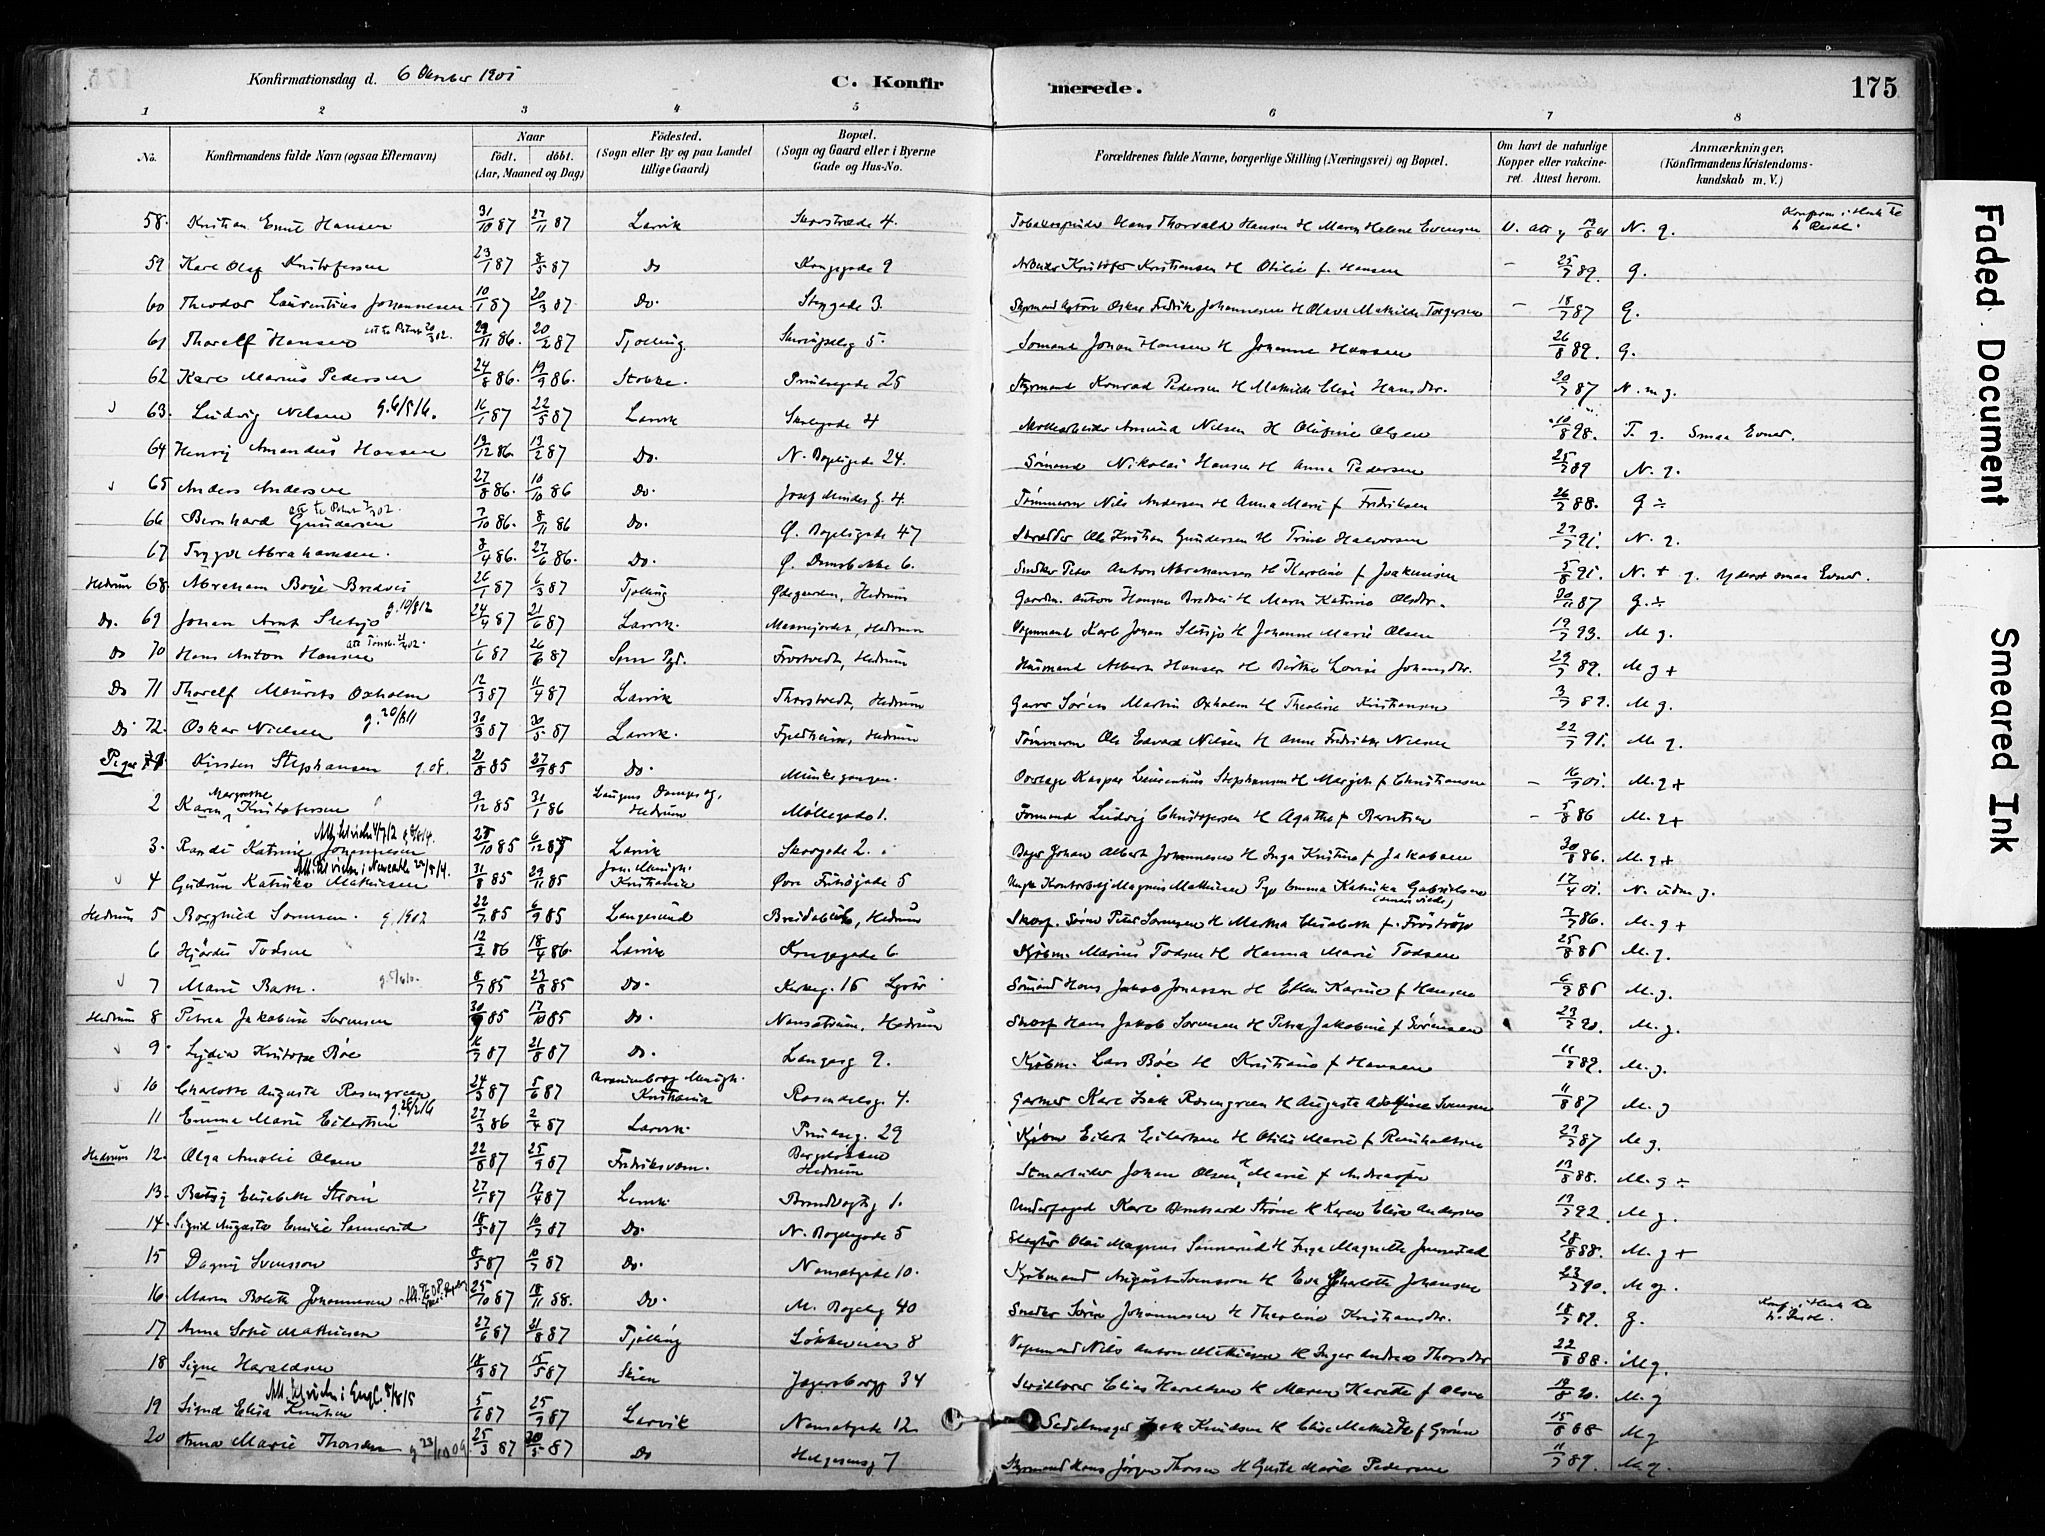 Konfirmationsdag d. 6 Oktober 1901
C. Konfirmerede.
175
1 2 3 4 5 6 7 8
No. Konfirmandens fulde Navn (ogsaa Efternavn) Naar födt. döbt. (Aar, Maaned og Dag) Födested. (Sogn eller By og paa Landet tillige Gaard) Bopæl. (Sogn og Gaard eller i Byerne Gade og Hus-No. Forældrenes fulde Navne, borgerlige Stilling (Næringsvei) og Bopæl. Om havt de naturlige Kopper eller vakcineret. Attest herom. Anmærkninger, (Konfirmandens Kristendomskundskab m. V.)
58. Kristian Emil Hansen 31/10 87 27/11 87 Larvik 4. Hans Thorvald Hansen H Maren Helene Evensen N. g.
59 Karl Olaf Kristofersen 23/1 87 8/5 87 Do Kongegade 9 Arbeider Kristofer Kristiansen H Otilie f. Hansen 25/7 89. g.
60 Theodor Laurentius Johannesen 10/1 87 20/3 87. Do. Stengade 3. Oskar Fredrik Johannesen H Olava Mathilde Torgersen 18/7 87 g.
61 Thorolf Hansen 29/11 86. 20/2 87 Tjolling 5. Sömand Johan Hansen H Johanne Hansen 26/8 89. g.
62 Karl Marius Pedersen 24/8 86. 19/9 86. Stokke. Prinsegade 25 Styrmand Konrad Pedersen H Mathilde Elise Hansdtr. 20/7 87 N. m g.
63. Ludvig Nilsen g. 6/5 16. 16/1 87 22/5 87 Larvik Skolegade 4 Amund Nilsen H Olufine Olsen 10/8 98. T. g. Smaa Evner.
64 Henrij Amandus Hansen 19/12 86. 13/2 87 Do. N. Bøkeligade 24. Sömand Nikolai Hansen H Anna Pedersen 25/7 89 N. g.
65 Anders Andersen 27/8 86. 10/10 86 Do. Josef Mindes g. 4. Tömmerm Nils Andersen H Anna Marie f Fredriksen 26/7 88. g ÷
66 Bernhard Gundersen 7/10 86. 8/11 86 Do. Ø. Bøkeligade 47 Skrædder Ole Kristian Gundersen H Trine Halvorsen 27/7 91. N. g.
67 Trygve Abrahamsen. 8/4 86. 27/6 86. Do. Ø. 6. Snedker Peter Anton Abrahamsen H Karoline f Joakimsen 5/8 91. N. + g. Yderst smaa Evner.
Hedrum 68. Abraham Borge Bredvei 26/1 87 6/3 87 Tjolling Ødegaarden, Hedrum Gaardm. Anton Hansen Bredvei H Maren Katrine Olsdtr. 20/11 87 g. ÷
Do. 69 Johan Arnt Sletsjo g. 19/8 12 24/4 87 21/6 87 Larvik. Hedrum Vognmand Karl Johan Slesjo H Johanne Marie Olsen 19/7 93. M g.
Do 70 Hans Anton Hansen 1/6 87 26/6 87 Frostvedt, Hedrum Husmand Albert Hansen H Birthe Lovise Johansdtr. 29/7 89. M g +
Do 71 Thorolf Maurits Oxholm 12/3 87 11/4 87 Larvik Thorstvedt, Hedrum Garver Sören Martin Oxholm H Theoline Kristiansen 3/7 87. M g.
Do 72. Oskar Nielsen g. 20/8 11 30/3 87 30/5 87 Larvik. Fjeldheim, Hedrum Tömmerm Ole Edvard Nilsen H Anne Fredrikke Nilsen 22/7 91. M g.
Piger 1 Kirsten Stephansen g. 08. 21/8 85 27/9 85 Do. Munkegangen. Kaspar Laurentius Stephansen H Margith f Christiansen 16/7 01. M. g +
2 Karen Margrethe Kristofersen 9/12 85 31/1 86 Hedrum Möllegade 1. Formand Ludvig Christofersen H Agathe f Berntsen 5/8 86 M. g +
3. Randi Katrine Johannesen 25/10 85 6/12 85 Larvik Skovgade 2. Johan Albert Johannesen H Inga Kristine f Jakobsen 30/8 86. M. g +
4 Gudrun Katrika Mathiesen 31/8 85 29/11 85 Kristiania Øvre Fritzögade 5 Ungk Kontorbetj Magnus Mathiesen Pige Emma Katrika Gabrielsen 17/4 01. N. udm g.
Hedrum 5 Borghild Sorensen. g. 1902 22/7 85 6/9 85 Langesund Breidablik, Hedrum Skosf. Sören Peter Sorensen H Martha Elisabeth f. Fröströp 7/7 86. M. g +
6 Hjördis Todsen 12/2 86 18/4 86. Larvik Kongegade 6 Kjöbm. Marius Todsen H Hanna Marie Todsen 25/8 86 M. g.
7 Marie Barth. 8/7 85 23/8 85 Do. Kirkeg. 16 Sömand Hans Jakob Jonassen H Ellen Karine f Hansen 6/9 86. M. g.
Hedrum 8 Petra Jakobine Sorensen 30/9 85 17/10 85 Do. Nansetrum, Hedrum Skosf Hans Jakob Sorensen H Petra Jakobine f Sörensen 23/7 90. M. g.
9. Lydia Kristofa Böe 16/7 87 21/8 87 Do. Langesg 9. Kjöbm. Lars Böe H Kristiane f Hansen 11/7 89. M. g.
10 Charlotte Augusta Rosengreen 24/3 87 5/6 87 Uranienborg Menigh. Kristiania Rosendalsg. 4. Gartner Karl Isak Rosengreen H Augusta Adolfine Svensen 11/8 87 M. g
11 Emma Marie Eilertsen 27/3 86 2/4 87 Larvik. Prinseg. 29 Kjöbm Eilert Eilertsen H Otilie Marie f Reinholtsen 27/7 87 M g.
Hedrum 12. Olga Amalie Olsen 22/8 87 25/9 87 Fredriksværn. Bergslökken Hedrum Johan Olsen H Marie f Andreassen 13/8 88. M. g ÷
13. Betsy Elisabeth Ström 27/1 87 17/4 87 Larvik Brandvagtg 1. Underfoged Karl Bernhard Ström H Karen Elise Andersen 13/7 92. M g.
14. Sigrid Augusta Emilie Sannerud 18/5 87 10/7 87 Do. N. Bøkeligade 5 Slagter Olai Magnus Sannerud H Inga Magnette Jonnestad 28/8 88. M. g +
15 Dagny Svensson 8/5 87 10/7 87 Do. Nansetgade 10. Kjöbmand August Svensson H Eva Charlotte Johansen 23/7 90. M g.
16. Maren Bolette Johannesen 25/10 87 18/11 88. Do. M. Bøkelig 40 Snedker Sören Johannesen H Theoline Kristiansdtr. 18/7 89. g.
17 Anna Sofie Mathiesen 27/6 87 21/8 87 Tjölling Lökkeveien 8 Vognmand Nils Anton Mathiesen H Inger Andrea Thorsdtr 22/8 88. M g.
18 Signe Haraldsen 18/3 87 15/5 87 Skien Jegersborgg 34 Elias Haraldsen H Maren Karette f Olsen 19/8 90. M. g
19 Sigrid Elisa Knutsen 5/6 87 25/9 87 Larvik Nansetgade 12 Sadelmager Isak Knudsen H Elise Mathilde f Grönn 15/8 88 M g
20 Anna Marie Thorsen 25/3 87 30/5 87 Do Helgesensg 7 Styrmand Hans Jörgen Thorsen H Gusta Marie Pedersen 11/7 89. M. g.
Faded Document
Smeared Ink